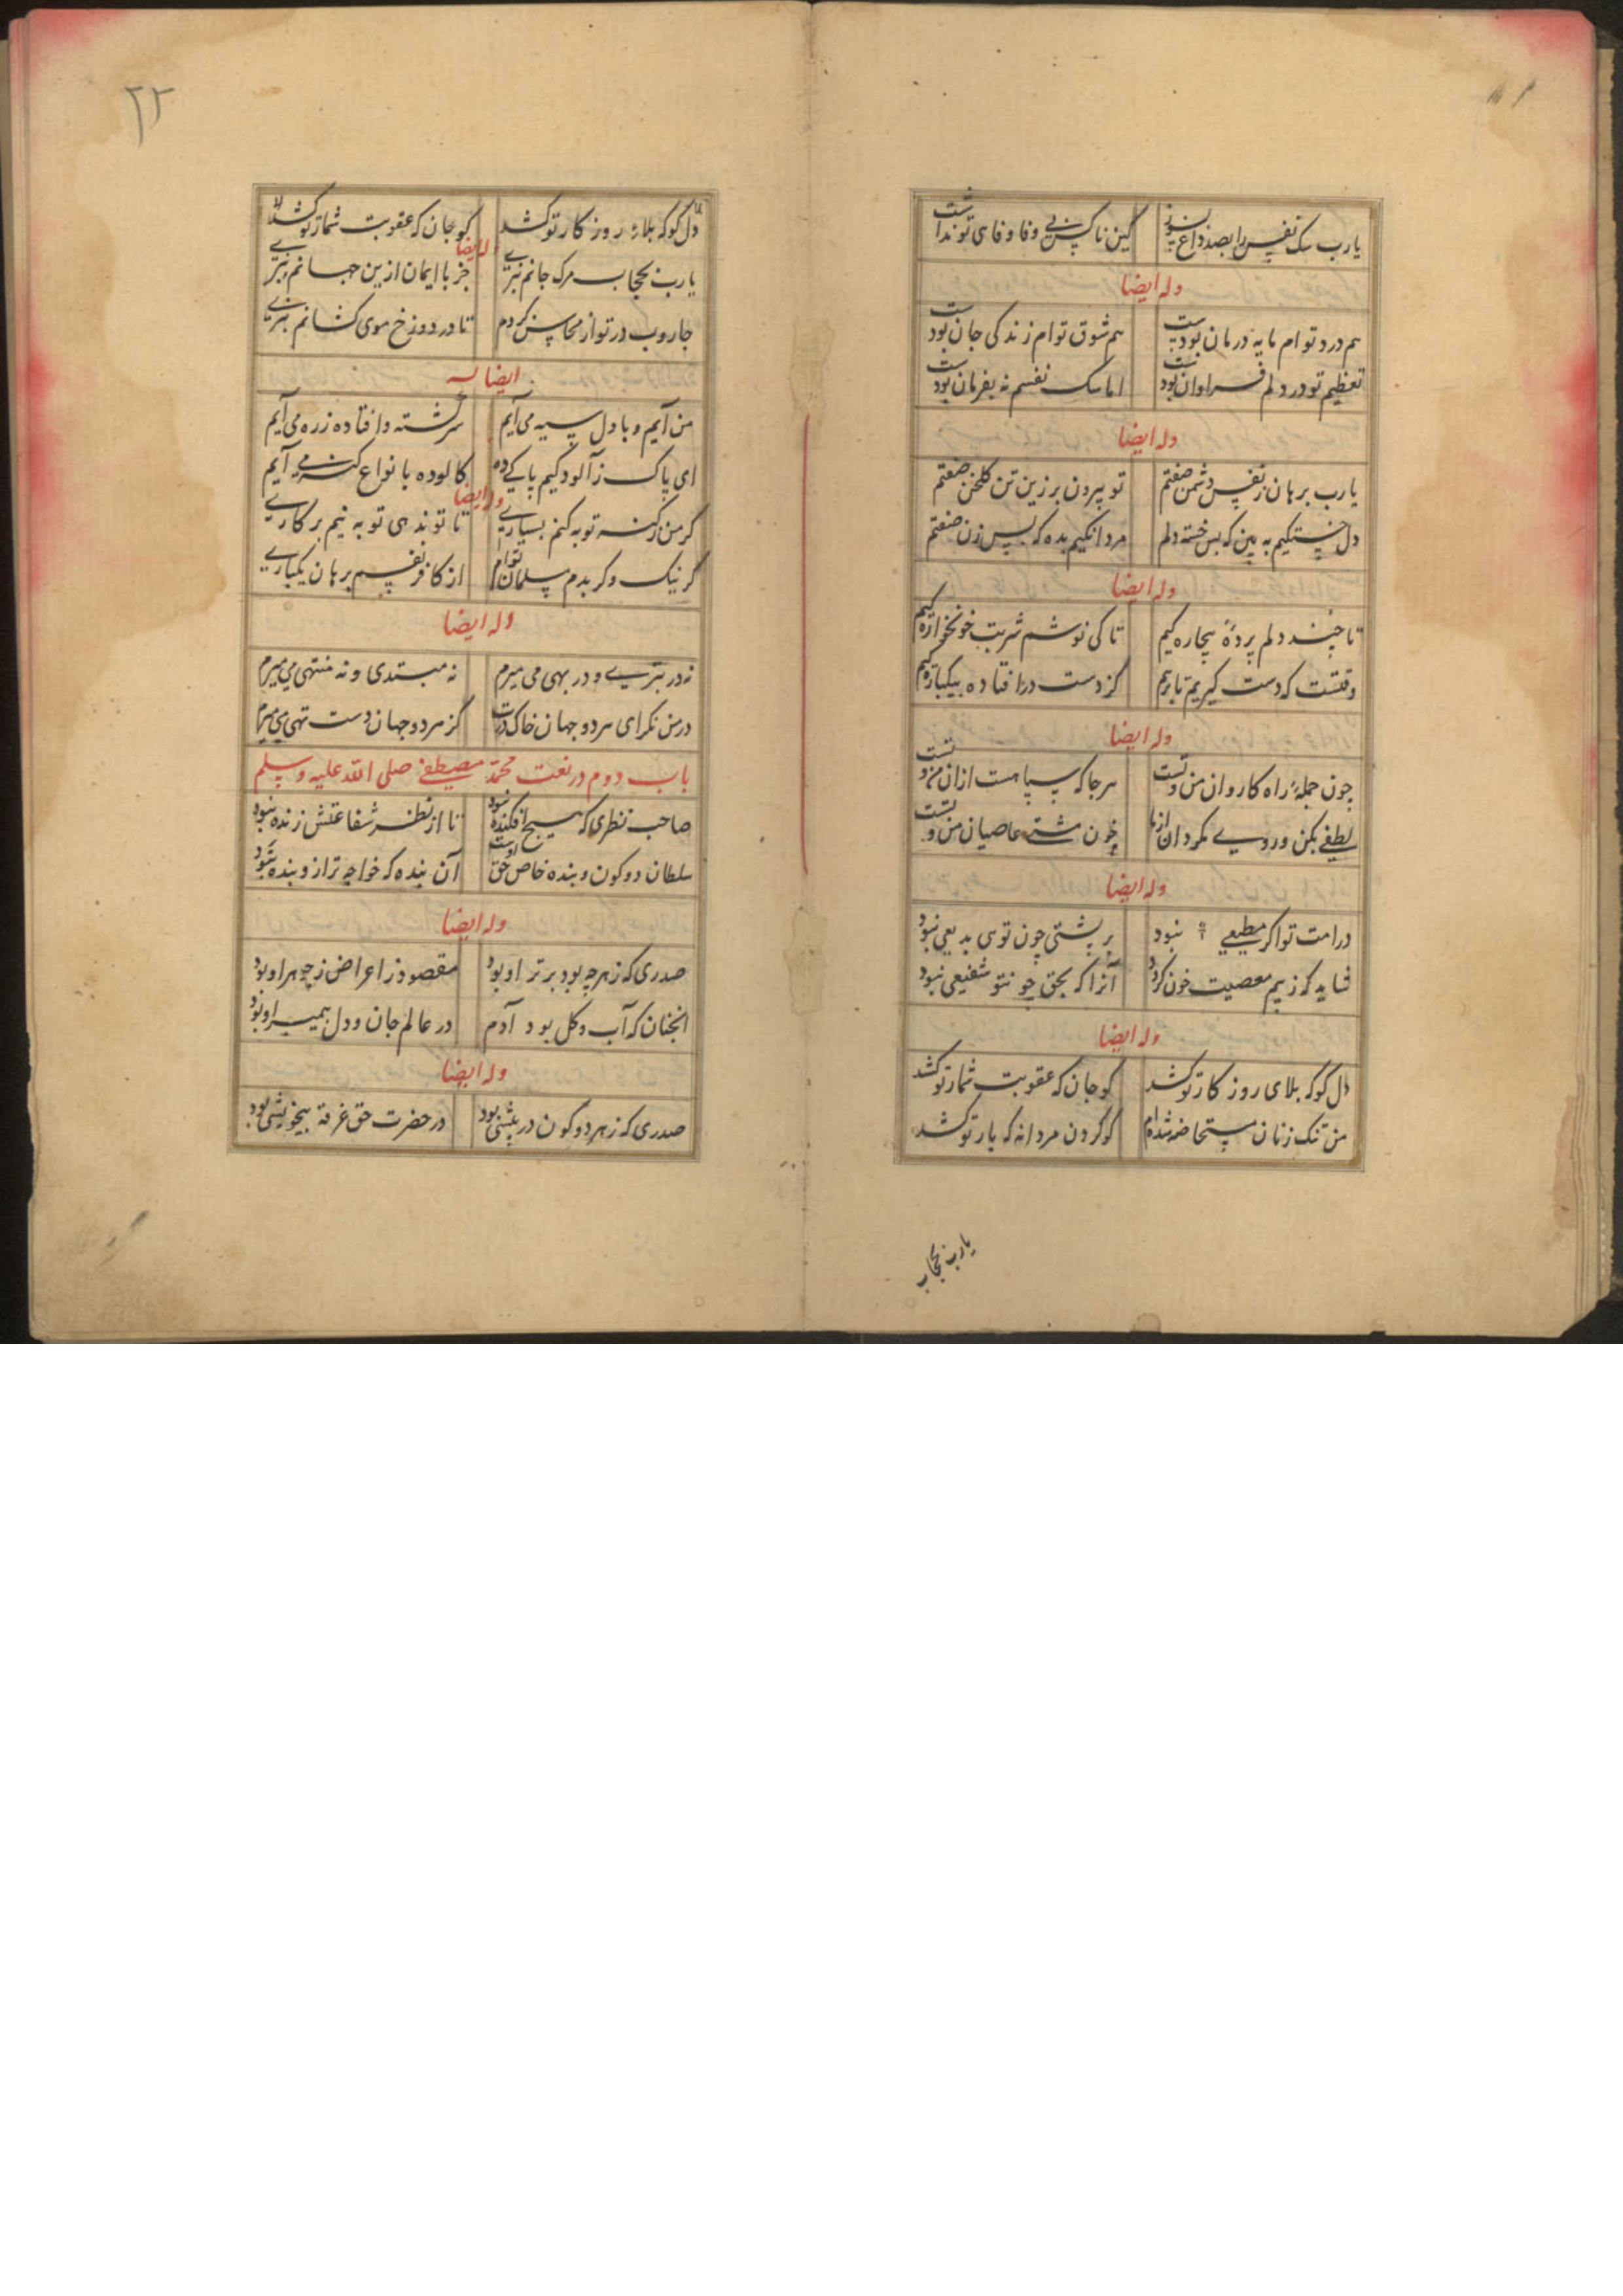 یارب سک نفس را بصد داغ بسوز کین ناکس بی وفا وفای تو نداشت
وله ایضا
هم درد توام مایه درمان بودست هم شوق توام زندگی جان بودست
تعظیم تو در دلم فراوان بودست اما سک نفسم نه بفرمان بودست
وله ایضا
یارب برهان ز نفس دشمن صفتم تو بیرون بر زین تن گلخن صفتم
دل خستگیم به بین که بس خسته دلم مردانگیم بده که بس زن صفتم
وله ایضا
تا چند دلم پردۀ بیچاره گیم تا کی نوشم شربت خونخواره گیم
وقتست که دست گیریم تا برهم کز دست در افتاده بیکباره گیم
وله ایضا
چون جملۀ راه کاروان من و تست هر جا که سپاهست ازان من و تست
لطفی بکن و روی مگردان از ما خون مشتی عاصیان من و تست
وله ایضا
در امت تو اگر مطیعی نبود بر پشتی چون توی بدیعی نبود
شاید که ز بیم معصیت خون گردد آنرا که بحق چو تتو شفیعی نبود
وله ایضا
دل کو که بلای روز کار تو کشد کو جان که عقوبت شمار تو کشد
من تنک زنان مستحاضه شده ام کو گردن مردانه که بار تو کشد
یارب بحجاب
۲۲
دل کو که بلاء روز کار تو کشد کو جان که عقوبت شمار تو کشد
وله ایضا
یارب بحجاب مرک جانم نبری جز با ایمان ازین جهانم نبری
جاروب در تو از محاسن کردم تا در دوزخ موی کشانم نبری
ایضا له
من آیم و با دل سیه می آیم سرگشته و افتاده ز ره می آیم
ای پاک ز آلودگیم پاکی ده کالوده بانواع گنه می آیم
وله ایضا
گر من ز گنه توبه کنم بسیاری تا تو ندهی توبه نیم بر کاری
گر نیک و گر بدم مسلمان توام از کافر نفسم برهان یکباری
وله ایضا
نه در بتری و در بهی می میرم نه مبتدی و نه منتهی می میرم
در من نگر ای هر دو جهان خاک درت کز هر دو جهان دست تهی می میرم
باب دوم در نعت محمد مصطفی صلی الله علیه و سلم
صاحب نظری که هیچ افکنده نبود تا از نظر شفاعتش زنده نبود
سلطان دو کون و بنده خاص حق اوست آن بنده که خواجه تر ازو بنده نبود
وله ایضا
صدری که ز هر چه بود برتر او بود مقصود ز اعراض ز جوهر او بود
انجنان که آب و گل بود آدم در عالم جان و دل پیمبر او بود
وله ایضا
صدری که ز هر دو کون در پیشی بود در حضرت حق غرقۀ بیخویشی بود